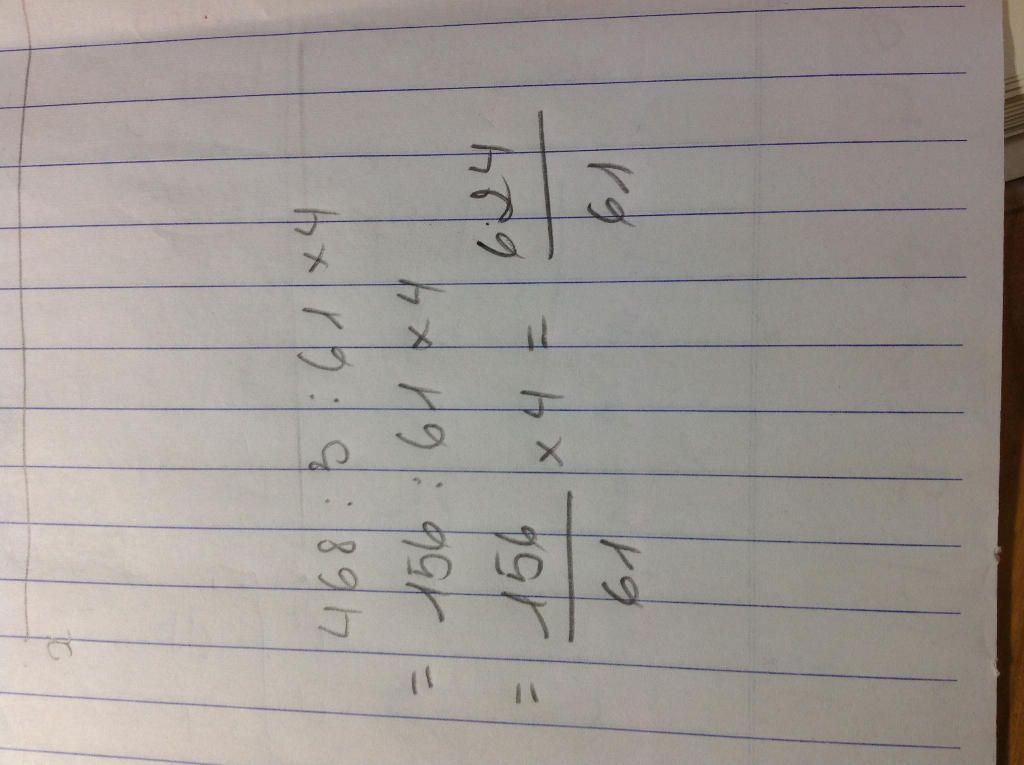 468 : 3 : 61 x 4
= 156 : 61 x 4
= 156/61 x 4 = 624/61